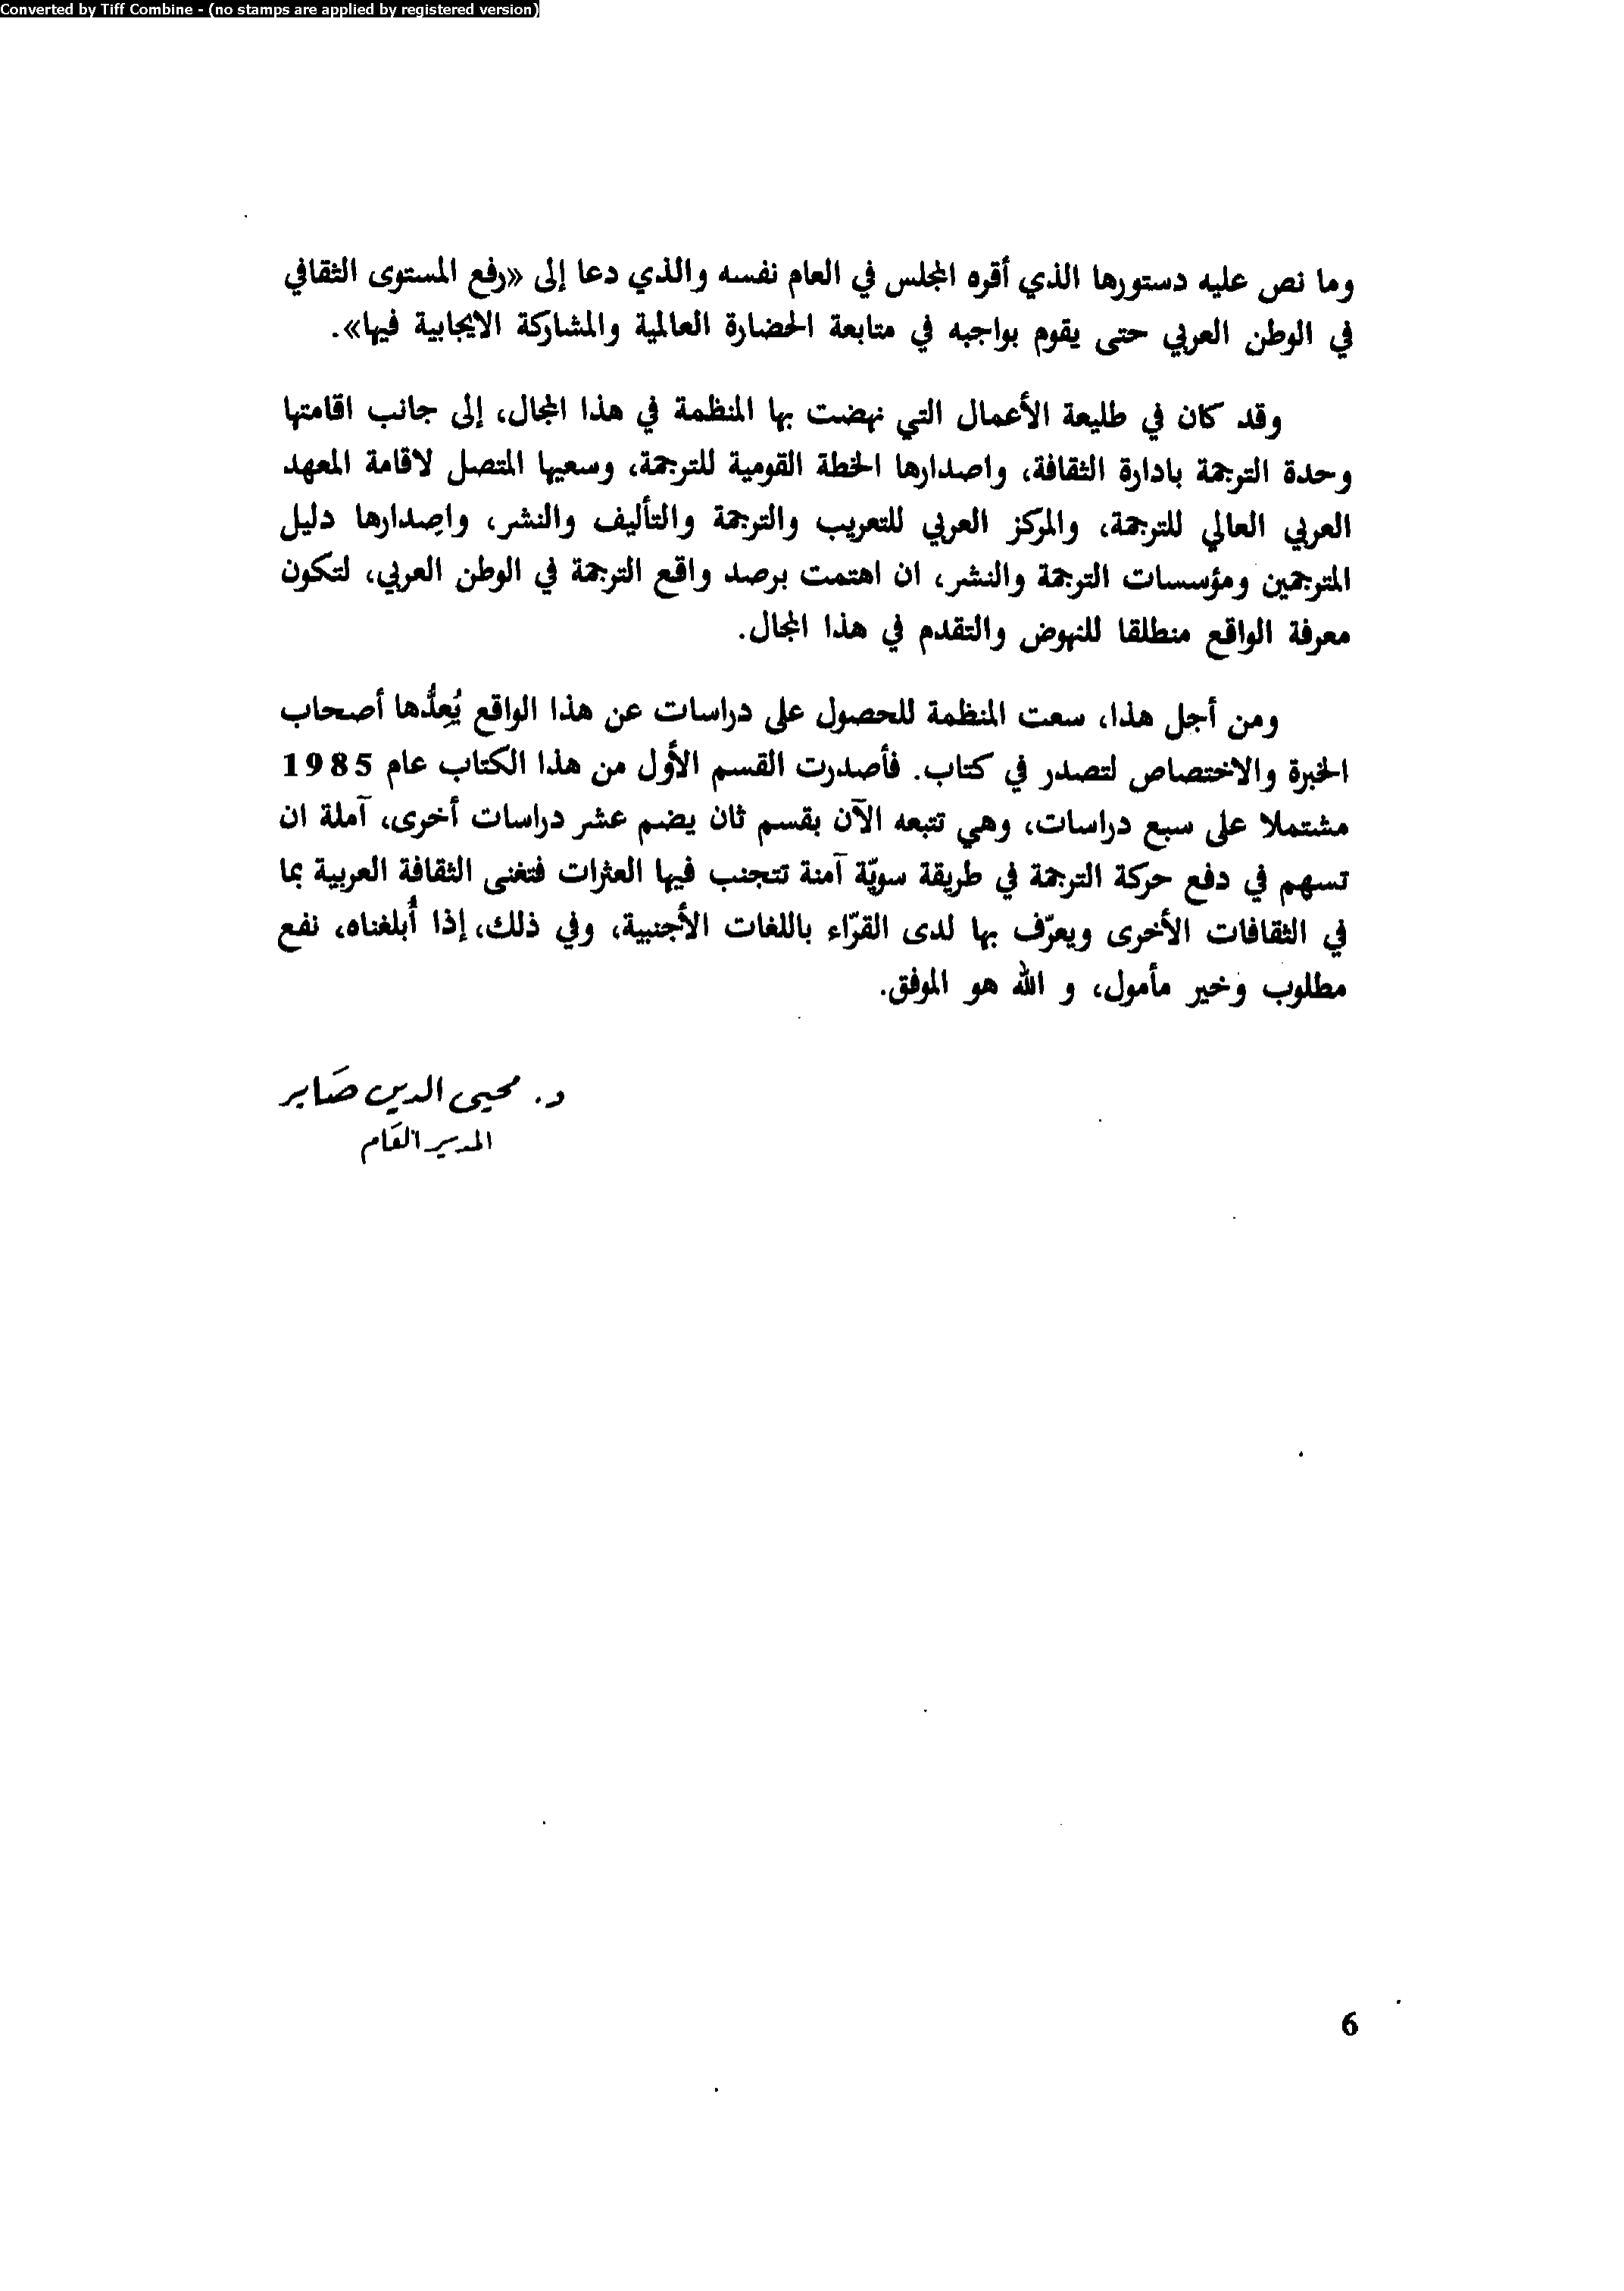 Converted by Tiff Combine - (no stamps are applied by registered version)
وما نص عليه دستورها الذي أقره المجلس في العام نفسه والذي دعا إلى «رفع المستوى الثقافي
في الوطن العربي حتى يقوم بواجبه في متابعة الحضارة العالمية والمشاركة الايجابية فيها».
وقد كان في طليعة الأعمال التي نهضت بها المنظمة في هذا المجال، إلى جانب اقامتها
وحدة الترجمة بادارة الثقافة، واصدارها الخطة القومية للترجمة، وسعيها المتصل لاقامة المعهد
العربي العالي للترجمة، والمركز العربي للتعريب والترجمة والتأليف والنشر، واصدارها دليل
المترجمين ومؤسسات الترجمة والنشر، ان اهتمت برصد واقع الترجمة في الوطن العربي، لتكون
معرفة الواقع منطلقا للنهوض والتقدم في هذا المجال.
ومن أجل هذا، سعت المنظمة للحصول على دراسات عن هذا الواقع يُعِدُّها أصحاب
الخبرة والاختصاص لتصدر في كتاب. فأصدرت القسم الأول من هذا الكتاب عام 1985
مشتملا على سبع دراسات، وهي تتبعه الآن بقسم ثان يضم عشر دراسات أخرى، آملة ان
تسهم في دفع حركة الترجمة في طريقة سويّة آمنة تتجنب فيها العثرات فتغنى الثقافة العربية بما
في الثقافات الأخرى ويعرّف بها لدى القرّاء باللغات الأجنبية، وفي ذلك، إذا أُبلغناه، نفع
مطلوب وخير مأمول، و الله هو الموفق.
د. محيى الدين صَابر
المدير العَام
6